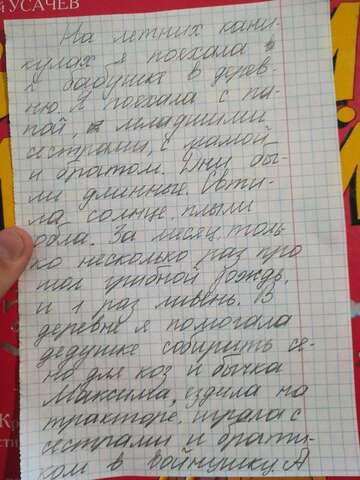 й УСАЧЕВ
На летних кани-
кулах я поехала
к бабушке в дерев-
ню. Я поехала с па-
пой, младшими
сестрами, с мамой
и братом. Дни бы-
ли длинные. Свти-
ла солнце, плыли
обла. За месяц толь
ко несколько раз про
шол грибной дождь,
и 1 раз ливень. В
деревне я помогала
дедушке собирить се-
но для коз и бычка
Максима, ездила на
тракторе, играла с
сестрами и брати-
ком в войнушку. А